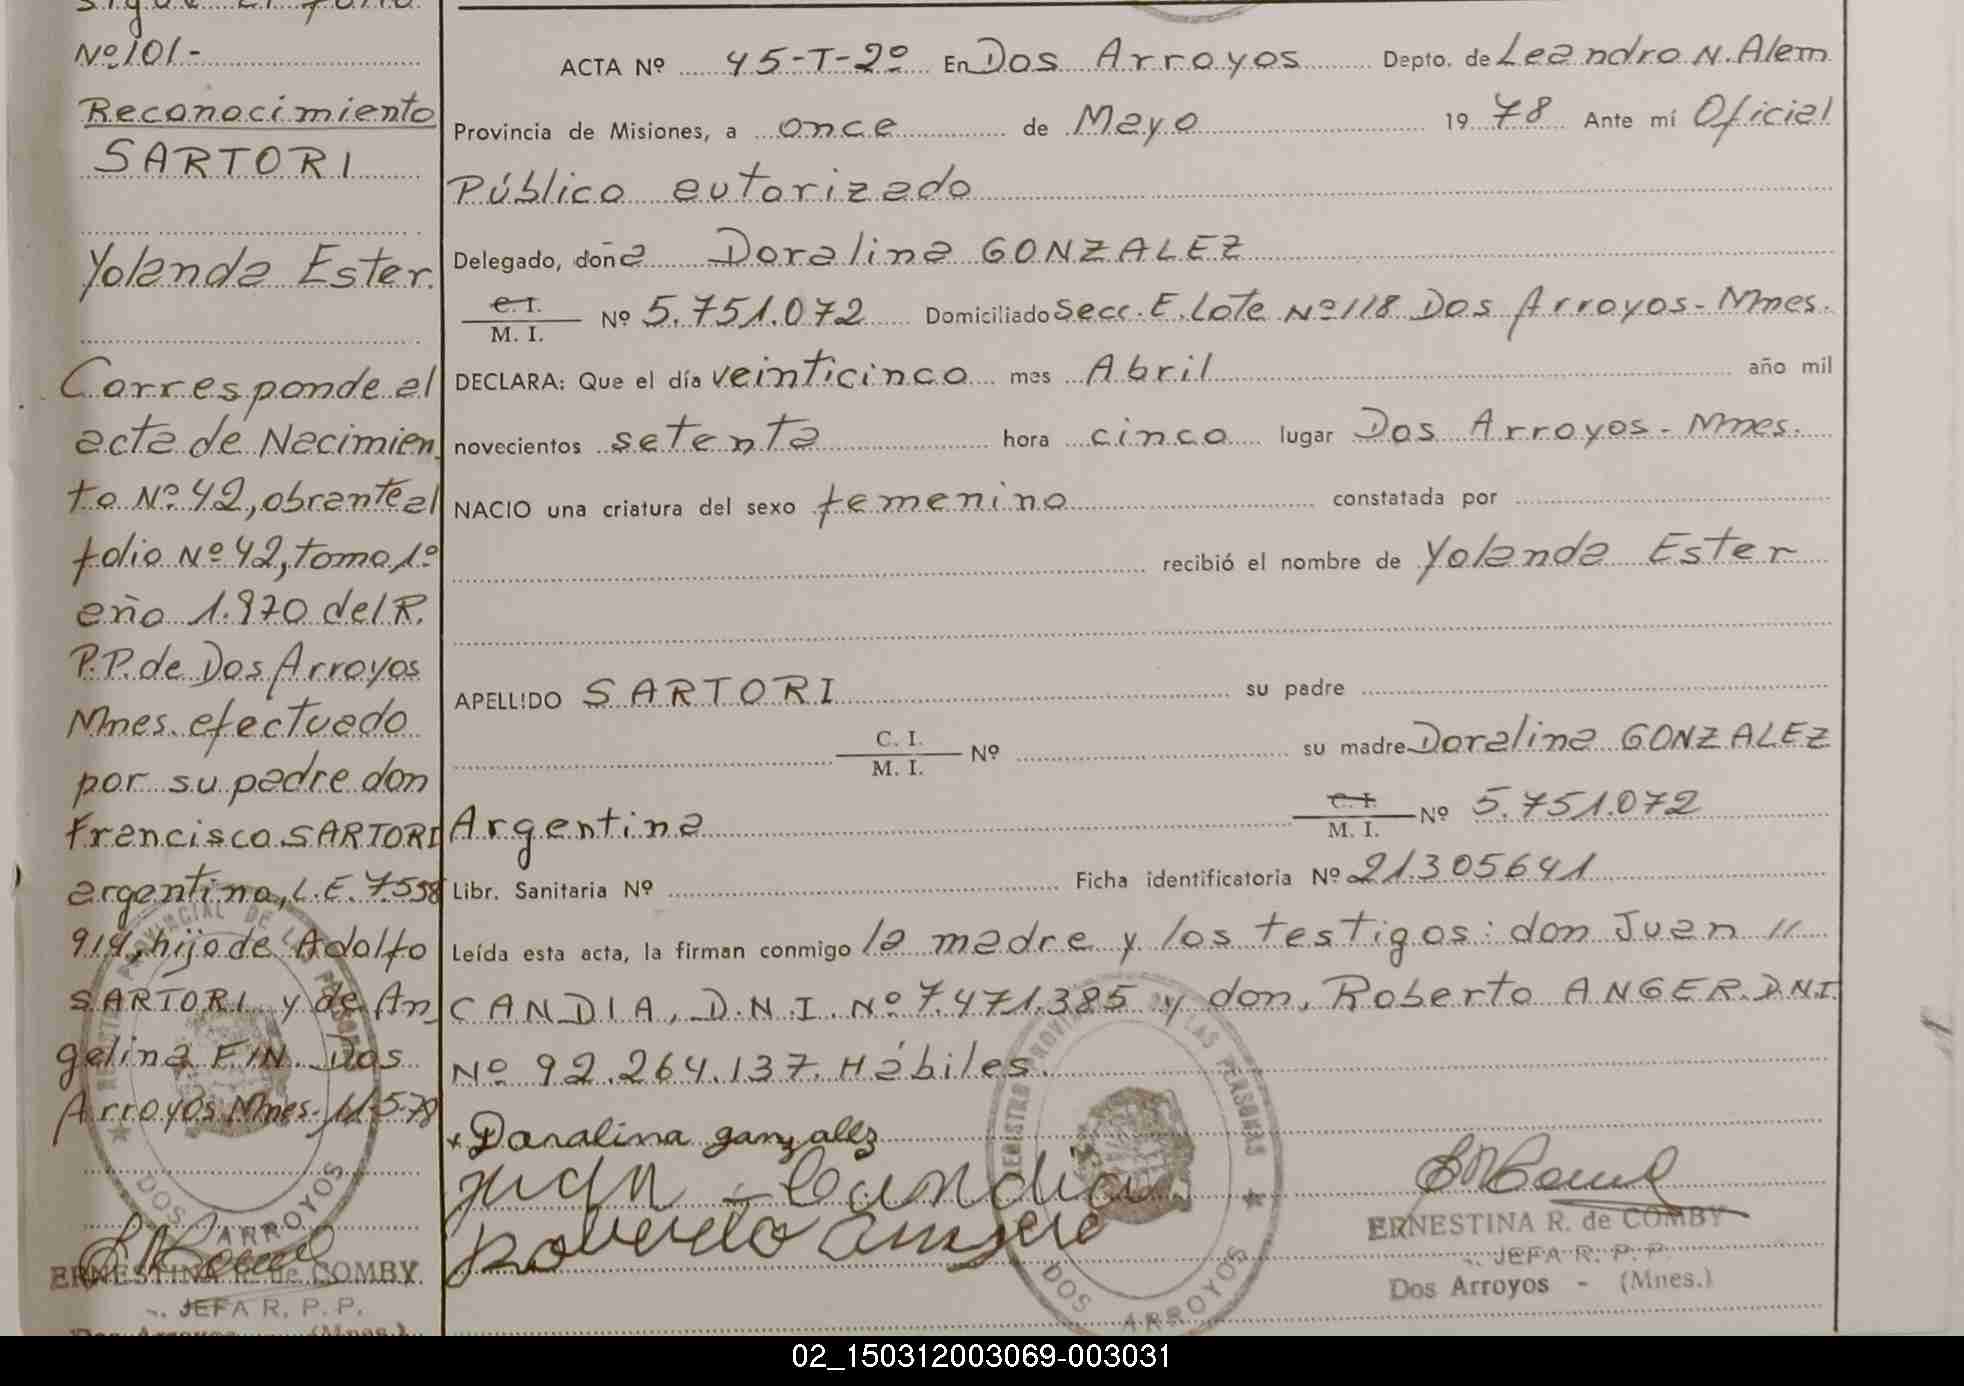 Nº 101-
Reconocimiento
SARTORI
Yolanda Ester.
Corresponde al
acta de Nacimien_
to Nº 42, obrante al
folio Nº 42, tomo 1º
año 1.970 del R.
P.P. de Dos Arroyos
Mnes. efectuado
por su padre don
Francisco SARTORI
argentino, L.E. 7.558
914, hijo de Adolfo
SARTORI y de An_
gelina FIN. Dos
Arroyos Mnes. 11-5-78
ERNESTINA R. de COMBY
JEFA R. P. P.
Dos Arroyos (Mnes.)
ACTA Nº 45-T-2º En Dos Arroyos Depto. de Leandro N. Alem
Provincia de Misiones, a once de Mayo 19 78 Ante mí Oficial
Público autorizado
Delegado, doña Doralina GONZALEZ
C. I.
M. I. Nº 5.751.072 Domiciliado Secc. E. Lote Nº 118 Dos Arroyos - Mnes.
DECLARA: Que el día veinticinco mes Abril año mil
novecientos setenta hora cinco lugar Dos Arroyos - Mnes.
NACIO una criatura del sexo femenino constatada por
recibió el nombre de Yolanda Ester
APELLIDO SARTORI su padre
C. I.
M. I. Nº su madre Doralina GONZALEZ
Argentina C. I.
M. I. Nº 5.751.072
Libr. Sanitaria Nº Ficha identificatoria Nº 21.305641
Leída esta acta, la firman conmigo la madre y los testigos: don Juan //
CANDIA, D.N.I. Nº 7.471.385 y don, Roberto ANGER. D.N.I.
Nº 92.264.137. Hábiles.
x Doralina gonzalez
juan - Candia
Roberto
REGISTRO PROVINCIAL DE LAS PERSONAS
DOS ARROYOS
ERNESTINA R. de COMBY
JEFA R. P. P.
Dos Arroyos - (Mnes.)
02_150312003069-003031